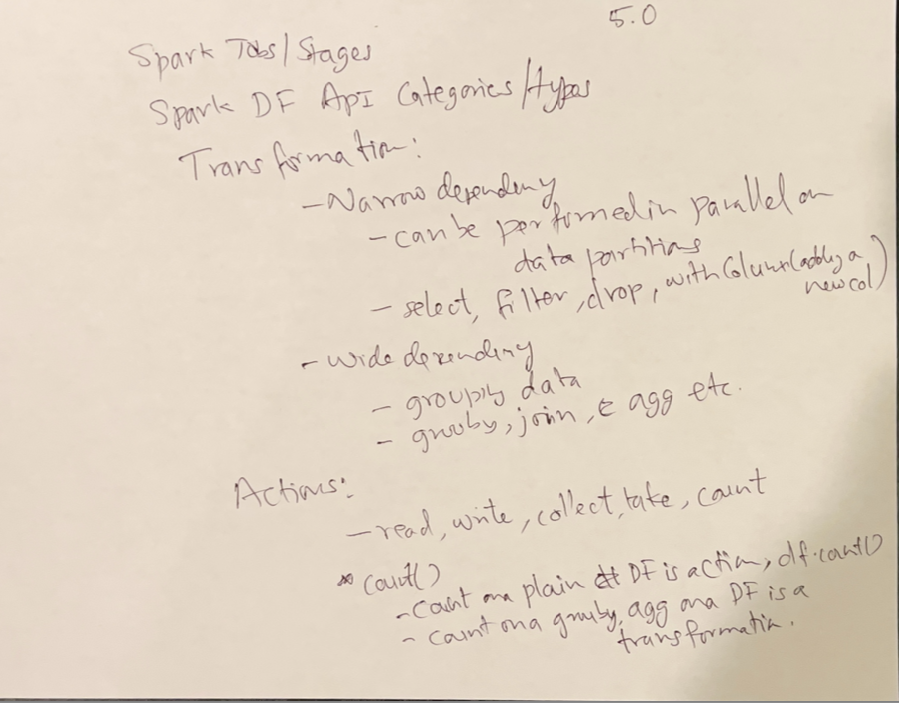 5.0
Spark Jobs/Stages
Spark DF ApI Categories/Types
Transformation:
- Narrow dependency
- can be performed in parallel on
data partitions
- select, filter, drop, withColumn(adding a
new col)
- wide dependency
- grouping data
- groupby, join, agg etc.
Actions:
- read, write, collect, take, count
* count()
- Count on a plain DF is action, df.count()
- count on a groupby, agg on a DF is a
transformation.